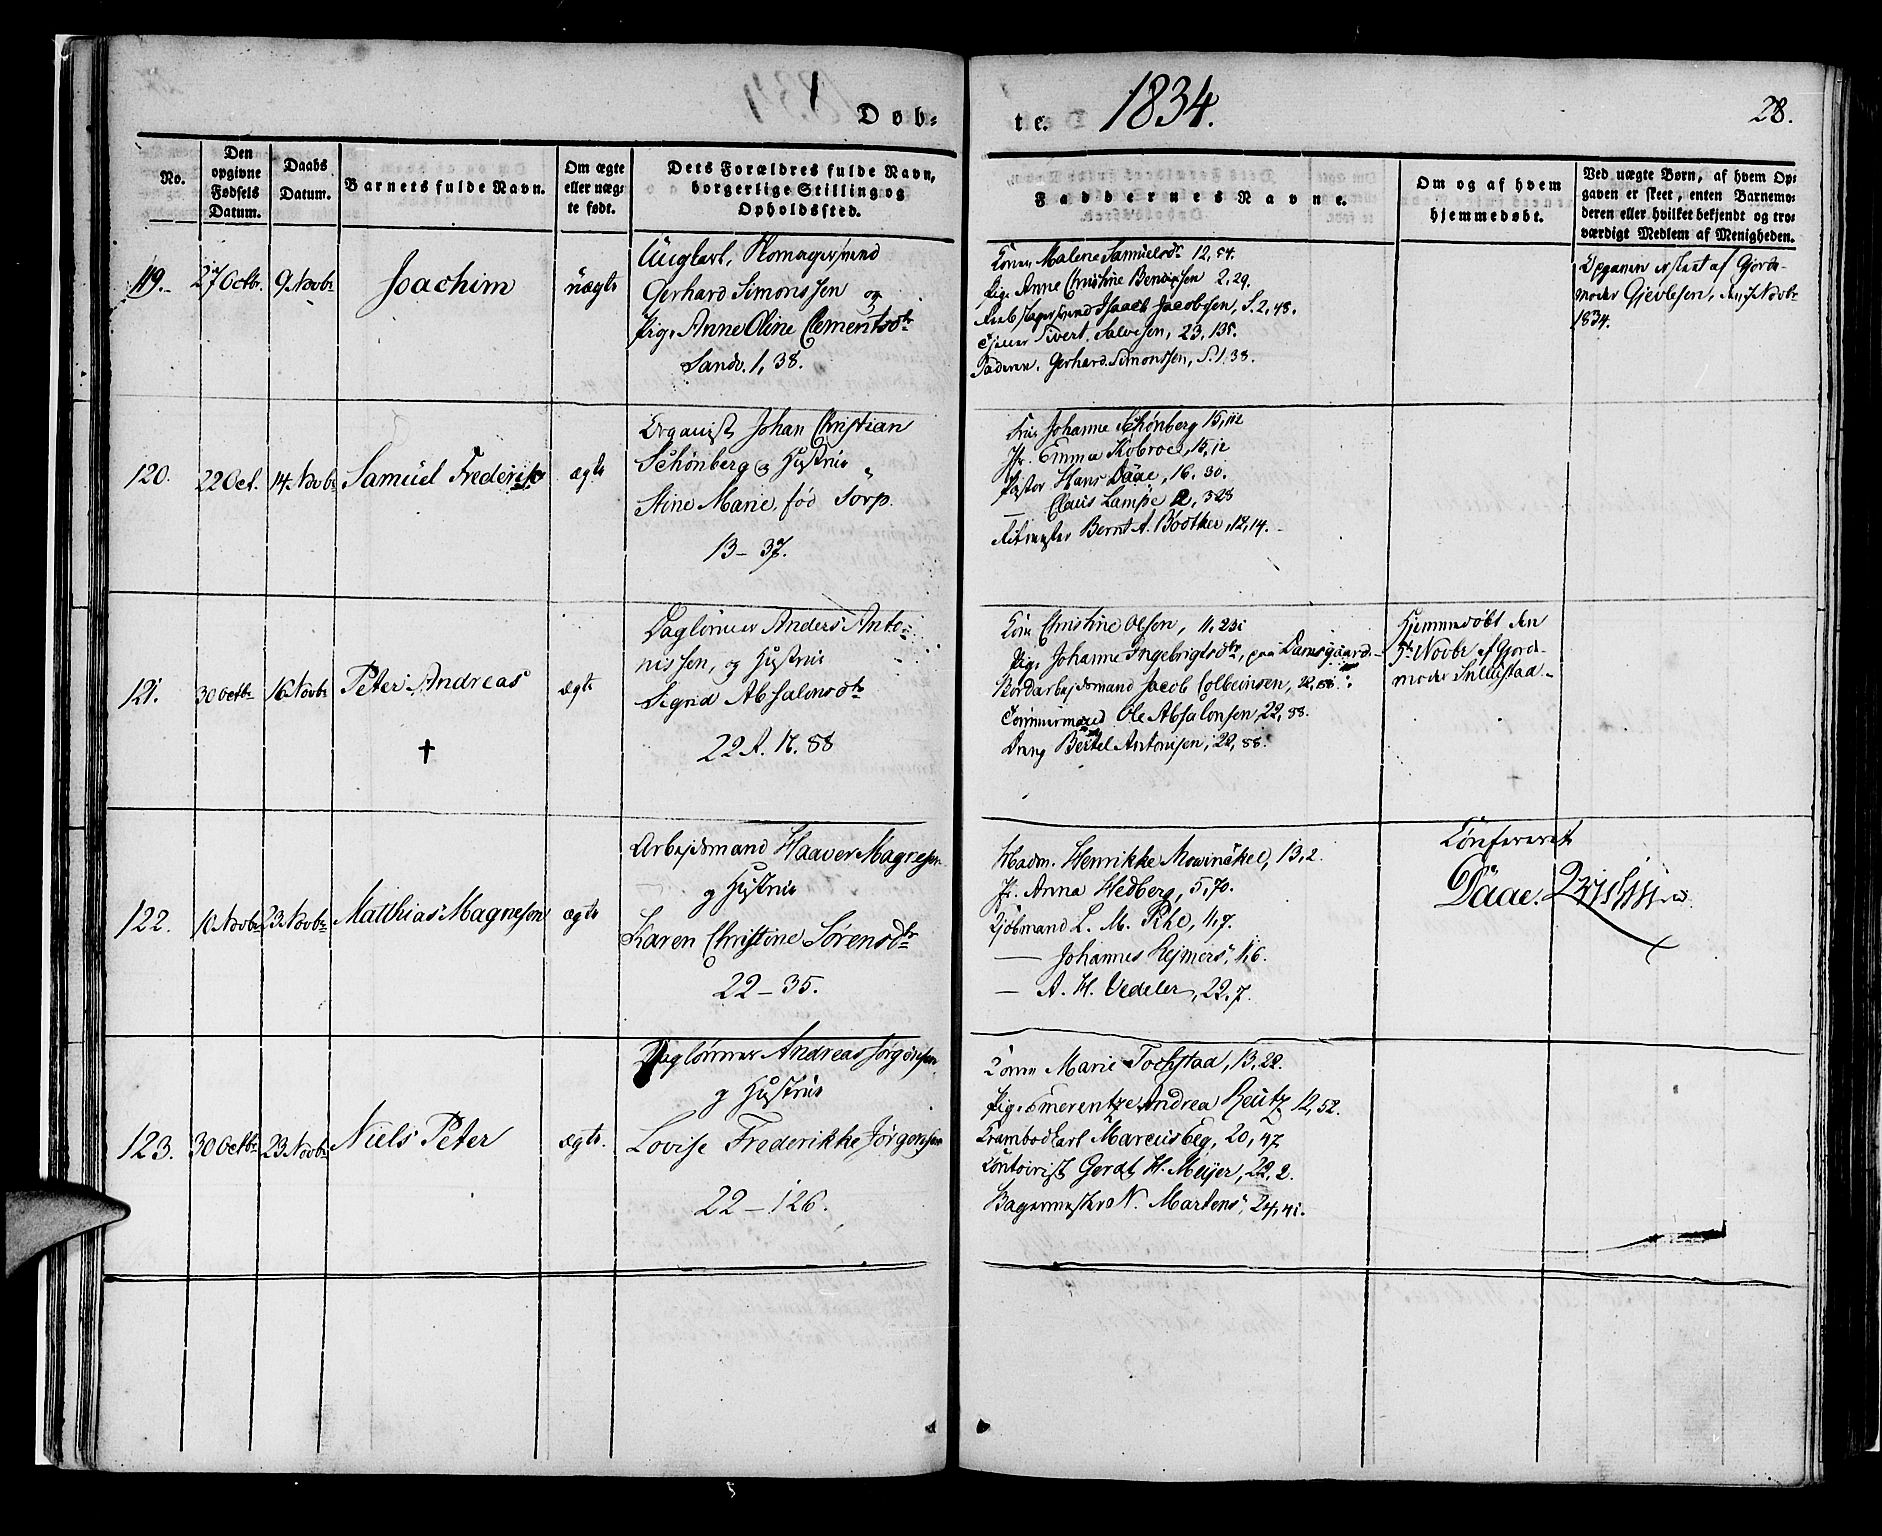 Døb-
te. 1834.
28.
No.
Den opgivne Fødsels Datum.
Daabs Datum.
Barnets fulde Navn.
Om ægte eller uæg-te født.
Dets Forældres fulde Navn, borgerlige Stilling og Opholdssted.
Faddernes Navne.
Om og af hvem hjemmedøbt.
Ved uægte Børn, af hvem Op-
gaven er skeet, enten Barnemo-
deren eller hvilket bekjendt og tro-
værdigt Medlem af Menigheden.
119.
27 Octbr.
9 Novbr
Joachim
uægte
Ungkarl,
Gerhard Simonssen og
Pige Anne Oline Clementsdtr
Sandv. 1, 38.
Kone Malene Samuelsdr 12, 54.
Pige Anne Christine Bendixsen 2, 29.
Isaach Jacobsen, S. 2, 48.
Sivert Salvesen, 23, 135.
Faderen, Gerhard Simonssen, S. 1, 38.
Opgaven er skeet af Gjorde-
moder Gjevlesen, den 7 Novbr
1834.
120.
22 Oct.
14 Novbr
Samuel Frederik
ægte
Organist Johan Christian
Schönberg og Hustrue
Stine Marie, fød Torp.
13 - 37.
Johanne Schönberg 15, 112
Jfr. Emma Kobroe, 15, 12
Pastor Hans Daae, 16. 30.
— Claus Lampe 2, 328
Ritmester Bernt A. Bødtker, 12, 14.
121.
30 Octbr
16 Novbr
Peter Andreas
†
ægte
Daglønner Anders Anto-
nissen, og Hustrue
Sigrid Absalonsdtr
22 A. N. 88
Kone Christine Olsen, 11, 231
Pige Johanne Ingebrigtsdtr, paa Damsgaard.
Bordarbejdsmand Jacob Colbeinsen, 22, 88.
Tømmermand Ole Absalonsen, 22, 88.
Dreng Bertel Antonisen, 22, 88.
Hjemmedøbt den
5te Novbr af Gjorde-
moder
122.
10 Novbr
23 Novbr
Matthias Magneson
ægte
Arbejdsmand Haaver Magnesen
og Hustrue
Karen Christine Sørensdtr
22 - 35.
Madm. Henrikke Mowinckel, 13, 2.
Jf. Anna Hedberg, 5, 70.
Kjøbmand L. M. Pihl, 4, 7.
— Johannes Rejmers, 1, 6.
— A. H. Vedeler, 22, 7.
Confereret
Daae.
123.
30 Octbr
23 Novbr
Niels Peter
ægte.
Daglønner Andreas Jørgensen
og Hustrue
Lovise Frederikke Jørgensen
22 - 126.
Kone Marie Tochstad, 13, 22.
Pige Emerentze Andrea Reutz 12, 52.
Krambodkarl Marcus Eeg, 20, 47
Contoirist Gerdt H. Meijer, 22, 2.
Bagermester N. Martens, 24, 41.